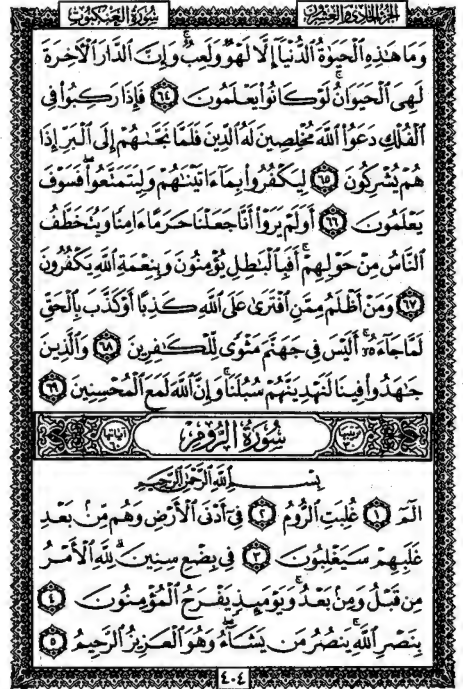 سُورَةُ العَنكَبُوتِ
الجُزْءُ الحَادِي وَالعِشْرُونَ
وَمَا هَٰذِهِ ٱلْحَيَوٰةُ ٱلدُّنْيَآ إِلَّا لَهْوٌ وَلَعِبٌ ۚ وَإِنَّ ٱلدَّارَ ٱلْءَاخِرَةَ
لَهِىَ ٱلْحَيَوَانُ ۚ لَوْ كَانُوا۟ يَعْلَمُونَ ٦٤ فَإِذَا رَكِبُوا۟ فِى
ٱلْفُلْكِ دَعَوُا۟ ٱللَّهَ مُخْلِصِينَ لَهُ ٱلدِّينَ فَلَمَّا نَجَّىٰهُمْ إِلَى ٱلْبَرِّ إِذَا
هُمْ يُشْرِكُونَ ٦٥ لِيَكْفُرُوا۟ بِمَآ ءَاتَيْنَٰهُمْ وَلِيَتَمَتَّعُوا۟ ۖ فَسَوْفَ
يَعْلَمُونَ ٦٦ أَوَلَمْ يَرَوْا۟ أَنَّا جَعَلْنَا حَرَمًا ءَامِنًا وَيُتَخَطَّفُ
ٱلنَّاسُ مِنْ حَوْلِهِمْ ۚ أَفَبِٱلْبَٰطِلِ يُؤْمِنُونَ وَبِنِعْمَةِ ٱللَّهِ يَكْفُرُونَ
٦٧ وَمَنْ أَظْلَمُ مِمَّنِ ٱفْتَرَىٰ عَلَى ٱللَّهِ كَذِبًا أَوْ كَذَّبَ بِٱلْحَقِّ
لَمَّا جَآءَهُۥٓ ۚ أَلَيْسَ فِى جَهَنَّمَ مَثْوًى لِّلْكَٰفِرِينَ ٦٨ وَٱلَّذِينَ
جَٰهَدُوا۟ فِينَا لَنَهْدِيَنَّهُمْ سُبُلَنَا ۚ وَإِنَّ ٱللَّهَ لَمَعَ ٱلْمُحْسِنِينَ ٦٩
ترتيبها ٣٠ سُورَةُ الرُّومِ آياتها ٦٠
بِسْمِ ٱللَّهِ ٱلرَّحْمَٰنِ ٱلرَّحِيمِ
الٓمٓ ١ غُلِبَتِ ٱلرُّومُ ٢ فِىٓ أَدْنَى ٱلْأَرْضِ وَهُم مِّنۢ بَعْدِ
غَلَبِهِمْ سَيَغْلِبُونَ ٣ فِى بِضْعِ سِنِينَ ۗ لِلَّهِ ٱلْأَمْرُ
مِن قَبْلُ وَمِنۢ بَعْدُ ۚ وَيَوْمَئِذٍ يَفْرَحُ ٱلْمُؤْمِنُونَ ٤
بِنَصْرِ ٱللَّهِ ۚ يَنصُرُ مَن يَشَآءُ ۖ وَهُوَ ٱلْعَزِيزُ ٱلرَّحِيمُ ٥
٤٠٤